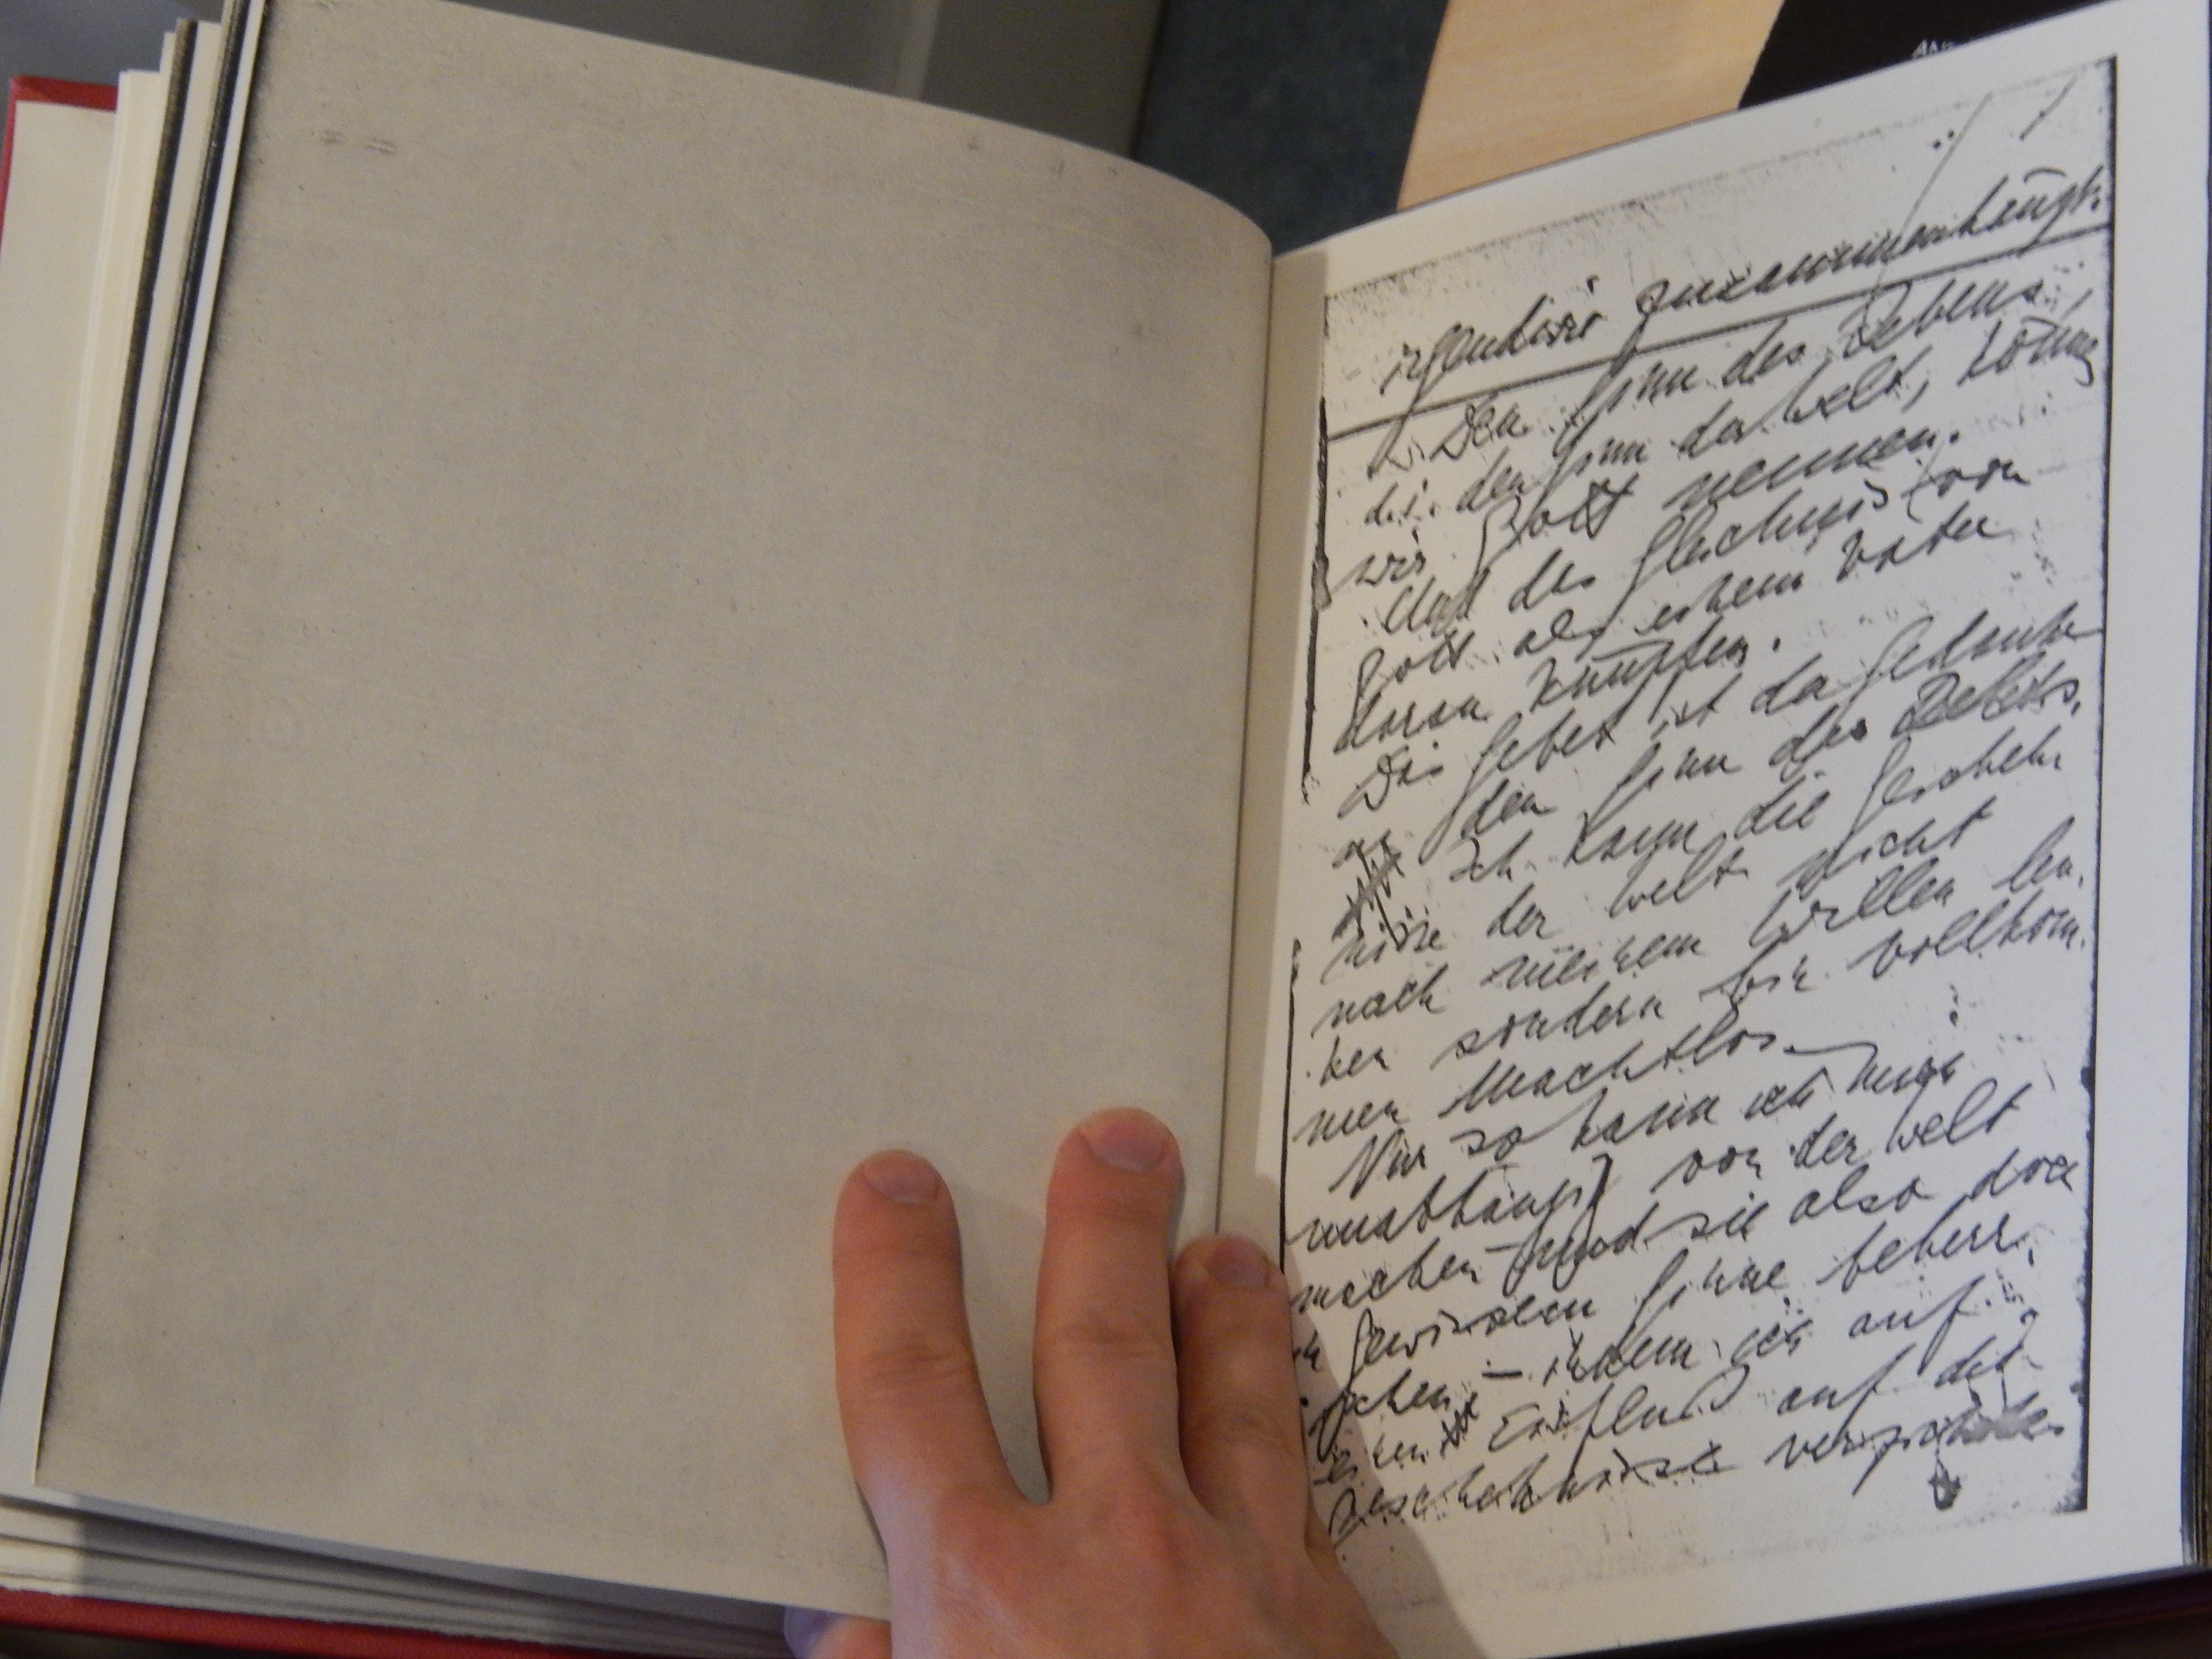 irgendwie zusammenhängt.
Den Sinn des Lebens,
d.i. den Sinn der Welt, können
wir Gott nennen.
Und das Gleichnis von
Gott als einem Vater
daran knüpfen.
Das Gebet ist der Gedanke
an den Sinn des Lebens.
Ich kann die Gescheh
nisse der Welt nicht
nach meinem Willen len-
ken sondern bin vollkom-
men machtlos.
Nur so kann ich mich
unabhängig von der Welt
machen — und sie also doch
in gewissem Sinne beherr-
schen — indem ich auf
einen Einfluß auf die
Geschehnisse verzichte.